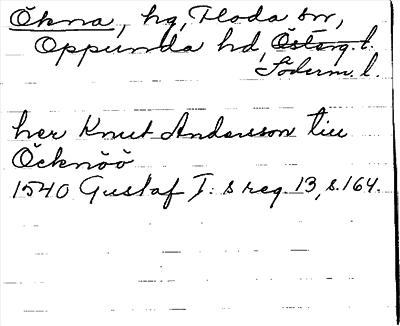 Ökna, hg, Floda sn,
Oppunda hd, Österg. l.
Söderm. l.
her Knut Andersson till
Öcknöö
1540 Gustaf I: s reg. 13, s. 164.